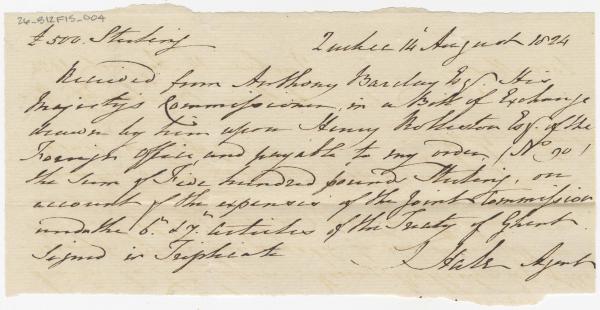 26-S12F15-004
£500. Sterling Quebec 14th August 1824
Received from Anthony Barclay Esqr. His
Majesty's Commissioner, in a Bill of Exchange
drawn by him upon Henry Rolleston Esq. of the
Foreign Office, and payable to my order, (No 90)
the sum of Five hundred pound Sterling, on
account of the expenses of the Joint Commission
under the 6th & 7th articles of the Treaty of Ghent.
Signed in Triplicate
S Hale Agent